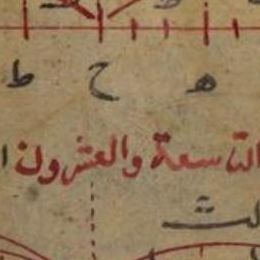 ه ح ط
التاسعة والعشرون ا
لث